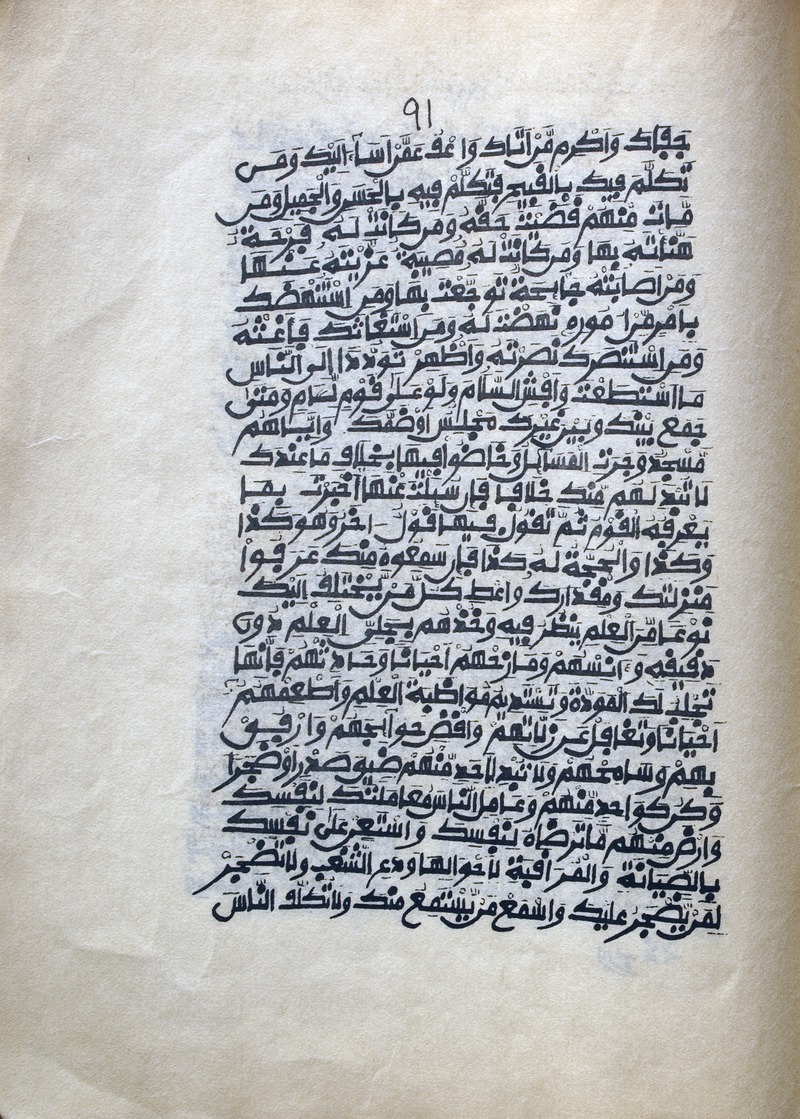 ٩١
جفاك واكرم من اتاك واعف عمن اساء اليك ومن
تكلم فيك بالقبيح فتكلم فيه بالحسن والجميل ومن
مات منهم قضيت حقه ومن كانت له فرحة
هناته بها ومن كانت له مصيبة عزيته عنها
ومن اصابته جايحة توجعت بها ومن استنهضك
بامر من اموره نهضت له ومن استغاثك فاغثه
ومن استنصرك نصرته واظهر توددا الى الناس
ما استطعت وافش السلام ولو على قوم لئام ومتى
جمع بينك وبين غيرك مجلس اوضمك واياهم
مسجد وجرت المسائل وخاضوا فيها بخلاف ما عندك
لا تبد لهم منك خلافا فان سيلت عنها اخبرت بما
يعرفه القوم ثم تقول فيها قول اخر وهو كذا
وكذا والحجة له كذا فان سمعوه منك عرفوا
منزلتك ومقدارك واعط كل من يختلف اليك
نوعا من العلم ينظر فيه وخذهم بجلي العلم دون
دقيقه وءانسهم ومازحهم احيانا وحادثهم فانها
تجلب لك المودة وتستديم مواظبة العلم واطعمهم
احيانا وتغافل عن زلاتهم واقض حوائجهم وارفق
بهم وسامحهم ولا تبد لاحد منهم ضيق صدر او ضجرا
وكن كواحد منهم وعامل الناس معاملتك لنفسك
وارض منهم ما ترضاه لنفسك واستعن على نفسك
بالصيانة والمراقبة لاحوالها ودع الشغب ولا تضجر
لمن يضجر عليك واسمع من يستمع منك ولا تكلف الناس